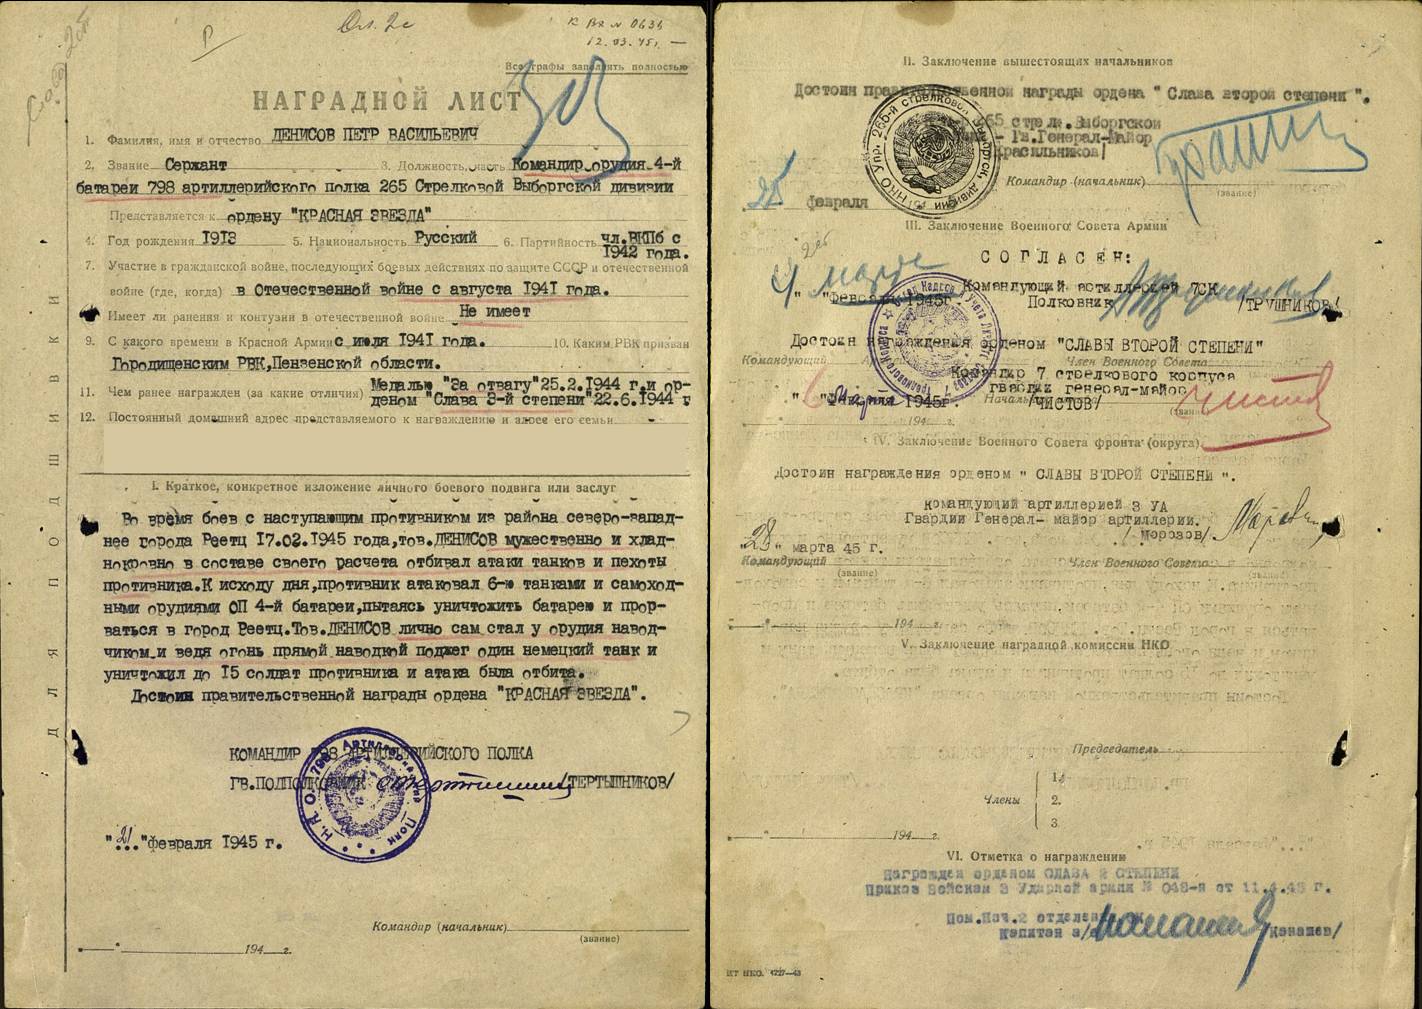 Сл. 2с
12.03.45г.
Все графы заполнять полностью
НАГРАДНОЙ ЛИСТ
1. Фамилия, имя и отчество ДЕНИСОВ ПЕТР ВАСИЛЬЕВИЧ
2. Звание Сержант 3. Должность, часть Командир орудия 4-й
батареи 798 артиллерийского полка 265 Стрелковой Выборгской дивизии
Представляется к ордену "КРАСНАЯ ЗВЕЗДА"
4. Год рождения 1913 5. Национальность Русский 6. Партийность чл.ВКПб с
1942 года.
7. Участие в гражданской войне, последующих боевых действиях по защите СССР и отечественной
войне (где, когда) в Отечественной войне с августа 1941 года.
Имеет ли ранения и контузии в отечественной войне Не имеет
9. С какого времени в Красной Армии с июля 1941 года. 10. Каким РВК призван
Городищенским РВК, Пензенской области.
11. Чем ранее награжден (за какие отличия) Медалью "За отвагу" 25.2.1944 г.и ор-
деном "Слава 3-й степени" 22.6.1944 г
12. Постоянный домашний адрес представляемого к награждению и адрес его семьи
I. Краткое, конкретное изложение личного боевого подвига или заслуг
Во время боев с наступающим противником из района северо-запад-
нее города Реетц 17.02.1945 года, тов.ДЕНИСОВ мужественно и хлад-
нокровно в составе своего расчета отбивал атаки танков и пехоты
противника.К исходу дня,противник атаковал 6-ю танками и самоход-
ными орудиями ОП 4-й батареи,пытаясь уничтожить батарею и прор-
ваться в город Реетц.Тов.ДЕНИСОВ лично сам стал у орудия навод-
чиком и ведя огонь прямой наводкой поджег один немецкий танк и
уничтожил до 15 солдат противника и атака была отбита.
Достоин правительственной награды ордена "КРАСНАЯ ЗВЕЗДА".
КОМАНДИР 798 АРТИЛЛЕРИЙСКОГО ПОЛКА
ГВ.ПОДПОЛКОВНИК /ТЕРТЫШНИКОВ/
"21" февраля 1945 г.
Командир (начальник)
(звание)
194 г.
ДЛЯ ПОДШИВКИ
Н.К.О. 798 Артиллерийский Полк
II. Заключение вышестоящих начальников
Достоин правительственной награды ордена " Слава второй степени ".
265 стрелк. Выборгской
- Гв.Генерал-Майор
Красильников/
Командир (начальник)
(звание)
25 февраля 194
III. Заключение Военного Совета Армии
СОГЛАСЕН:
4 марта
Командующий артиллерией 7СК
" " Февраля 1945г. Полковник /ТРУШНИКОВ/
Достоин награждения орденом "СЛАВЫ ВТОРОЙ СТЕПЕНИ"
Командующий Член Военного Совета
Командир 7 стрелкового корпуса
гвардии генерал-майор
" 6 " марта 1945г. /ЧИСТОВ/
194 г.
IV. Заключение Военного Совета фронта (округа)
Достоин награждения орденом " СЛАВЫ ВТОРОЙ СТЕПЕНИ ".
командующий артиллерией 3 УА
Гвардии Генерал- майор артиллерии.
/Морозов/
"28" марта 45 г.
Командующий Член Военного Совета
(звание) (звание)
194 г.
V. Заключение наградной комиссии НКО
Председатель
Члены
1.
2.
3
194 г.
VI. Отметка о награждении
Награжден орденом СЛАВА 2 СТЕПЕНИ
Приказ Войскам 3 Ударной армии № 048-н от 11.4.45 г.
Пом.Нач.2 отделения
Капитан а/с /Канашев/